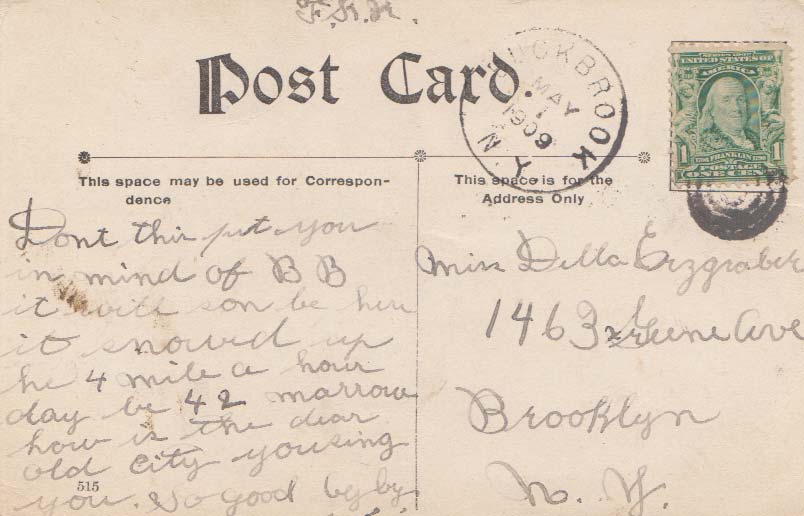 F.S.R.
Post Card.
BROOK
MAY
1
1909
N.Y.
SERIES 1902
UNITED STATES OF
AMERICA
1 FRANKLIN 1
POSTAGE
ONE CENT
This space may be used for Correspon-
dence
This space is for the
Address Only
Dont this put you
in mind of B B
it will son be here
it snowed up
he 4 mile a hour
day be 42 marrow
how is the dear
old city yousing
you. So good by by
515
Miss Della Erzgraber
1463 Greene Ave
Brooklyn
N. Y.